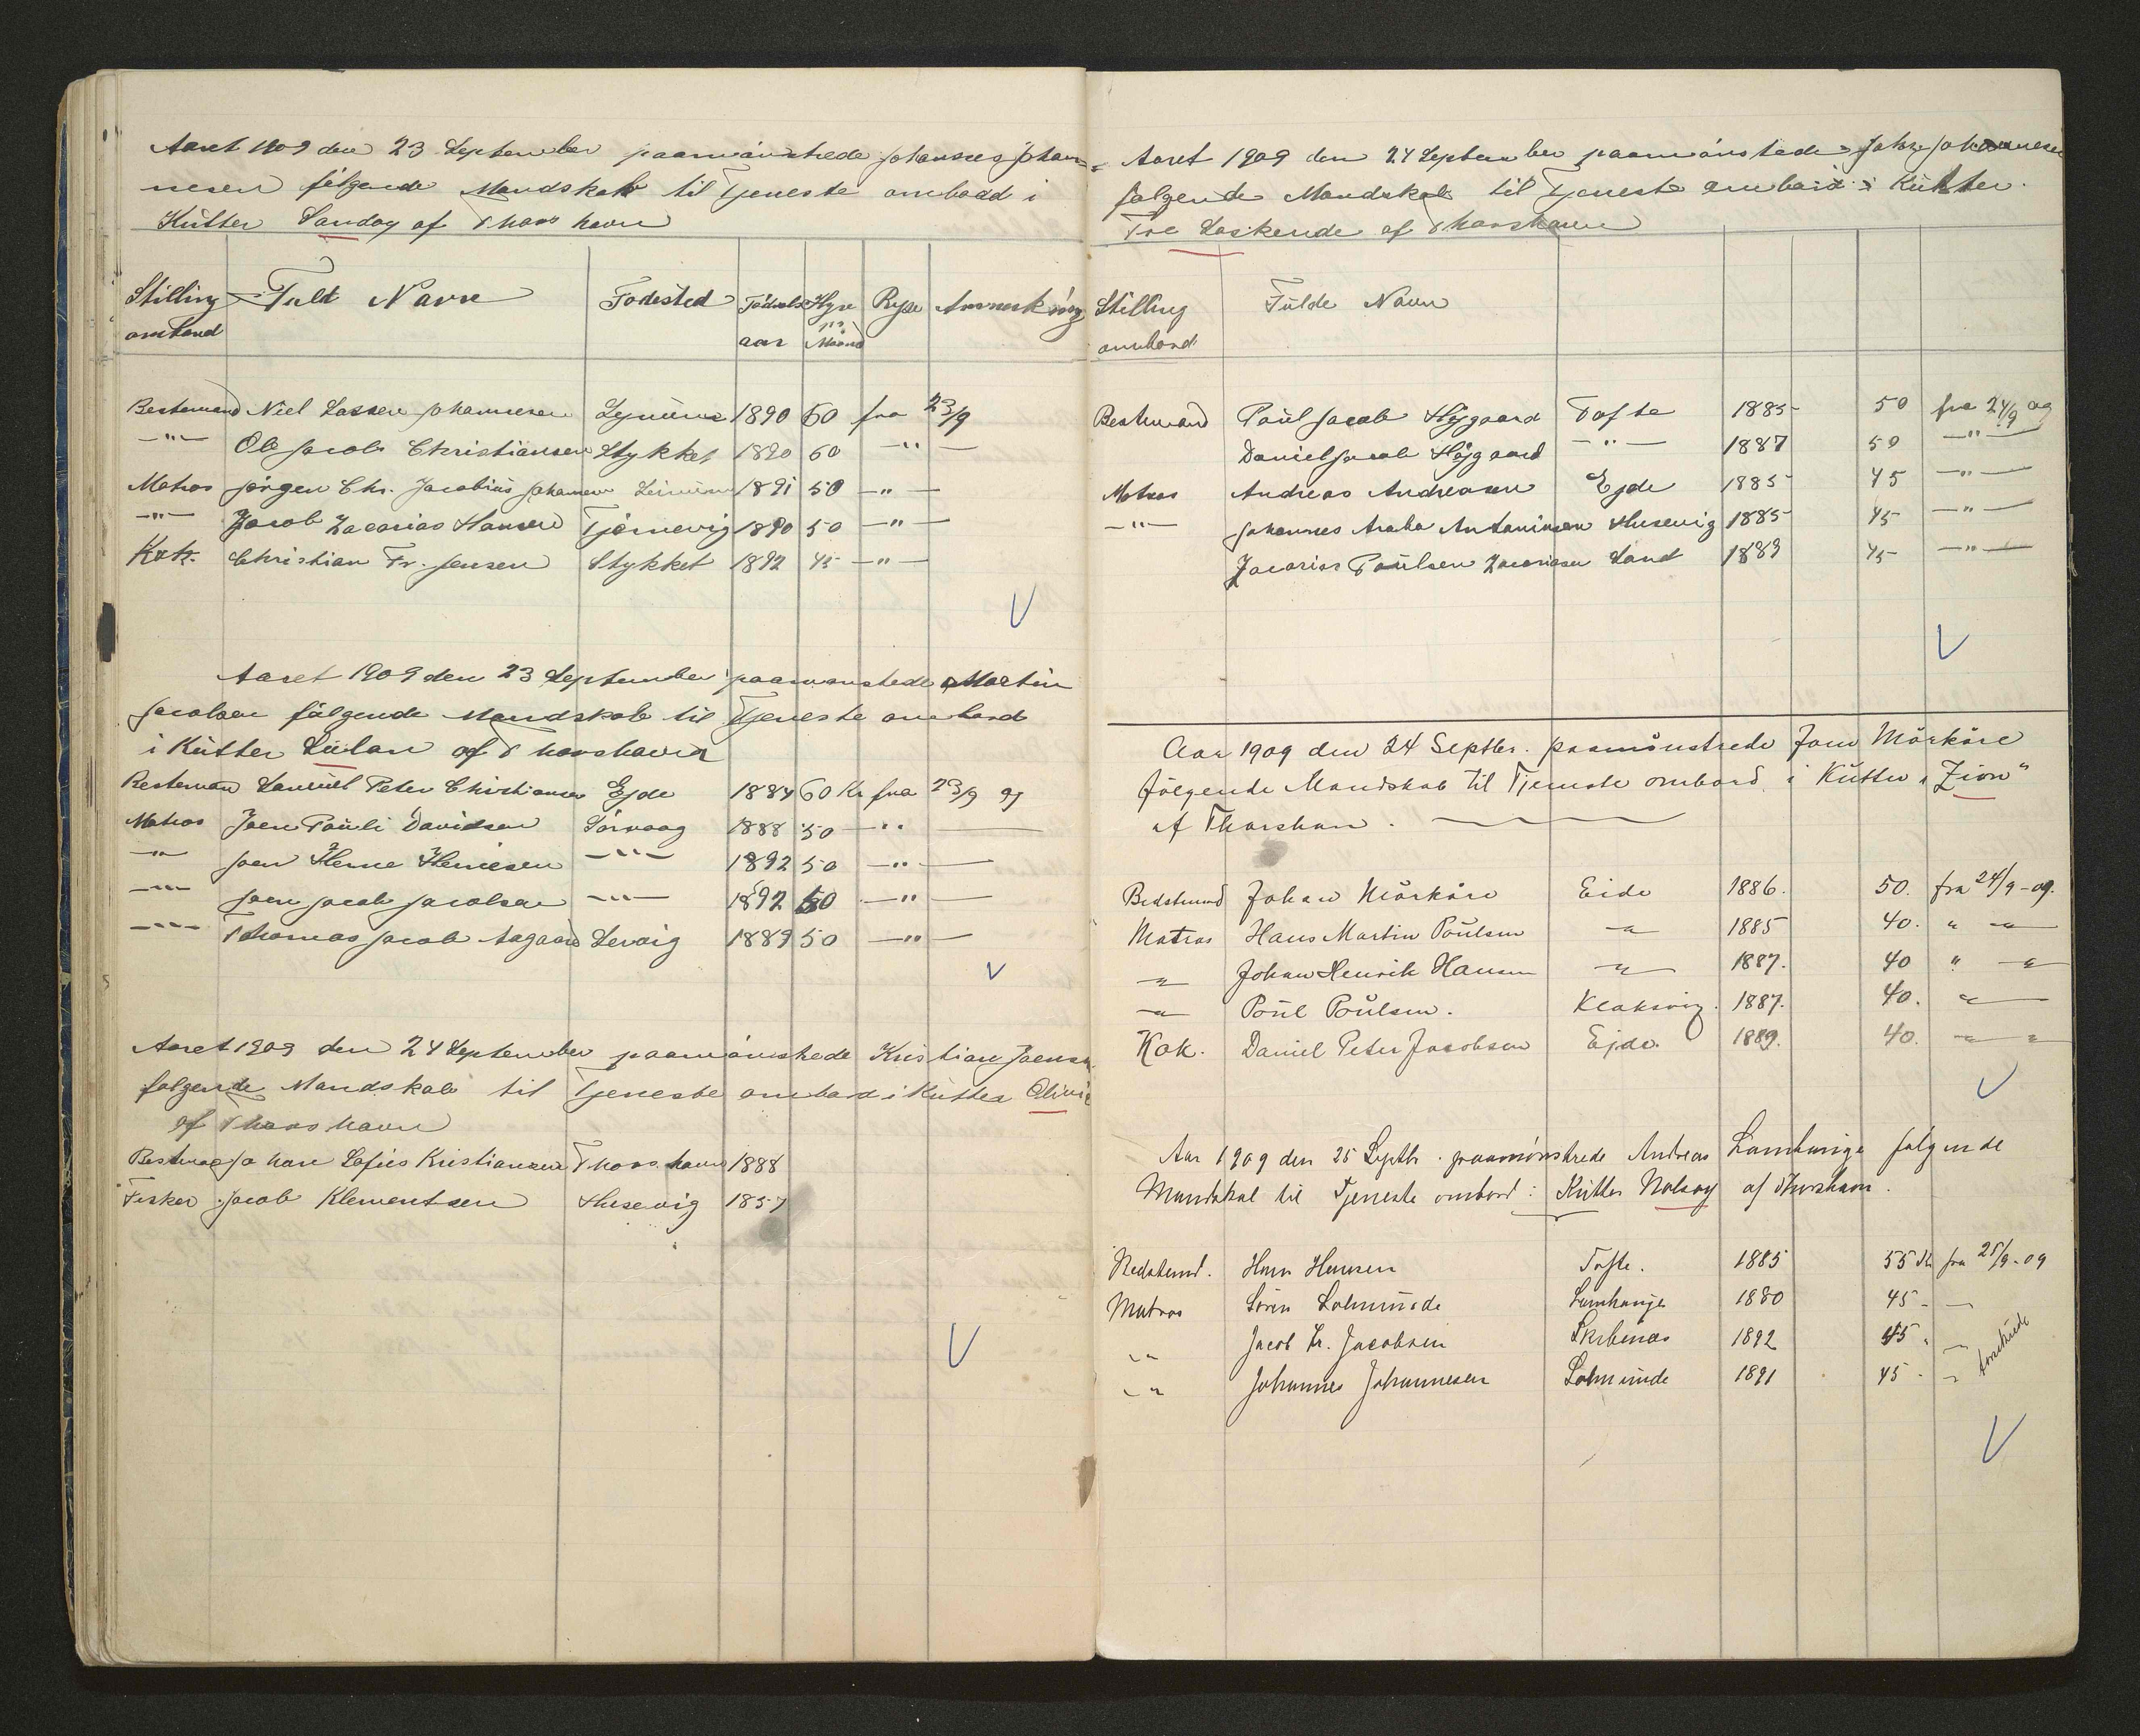 Aaret 1909 den 23 September paamönstrede Johannes Johan-
nesen fölgende Mandskab til Tjeneste ombord i
Kutter Sandoy af Thorshavn
Stilling Fult Navn Fodested Födsels Hyre Rejse Anmerkning
ombord aar pr. Maaned
Bestemand Niel Lassen Johannesen 1890 60 fra 23/9
-"- Ole Jacob Christiansen Stykket 1890 60 -"-
Matros Jörgen Chr. Jacobius 1891 50 -"-
-"- Jacob Zacarias Hansen Tjörnevig 1890 50 -"-
Kok. Christian Fr. Jensen Stykket 1892 45 -"-
Aaret 1909 den 23 September paamönstrede Martin
Jacobsen fölgende Mandskab til Tjeneste ombord
i Kutter af Thorshavn
Bestemand Samuel Peter Christiansen Ejde 1884 60 Kr fra 23/9
Matros Joen Pauli Davidsen Sörvaag 1888 50 -"-
-"- Joen Heine Heinesen -"- 1892 50 -"-
-"- Joen Jacob Jacobsen -"- 1892 50 -"-
-"- Thomas Jacob Aagaard Lervig 1889 50 -"-
Aaret 1909 den 24 September paamönstrede Kristian Joensen
folgende Mandskab til Tjeneste ombord i Kutter Olivia
af Thorshavn
Bestmand Johan Sofus Kristiansen Thorshavn 1888
Fisker Jacob Klementsen Husevig 1857
Aaret 1909 den 24 September paamönstrede Johannesen
folgende Mandskab til Tjeneste ombord i Kutter
Tre Soskende af Thorshavn
Stilling Fulde Navn
ombord
Bestemand Poul Jacob Höjgaard Tofte 1885 50 fra 24/9 09
Daniel Jacob Höjgaard -"- 1887 50 -"-
Matros Andreas Andreasen Ejde 1885 45 -"-
-"- Johannes Antoniusen Husevig 1885 45 -"-
Zacarias Poulsen Zacariasen Sand 1889 45 -"-
Aar 1909 den 24 Septbr. paamönstrede Joen Mörköre
fölgende Mandskab til Tjeneste ombord i Kutter „Zion"
af Thorshavn.
Bedstemand Johan Mörköre Eide 1886. 50. fra 24/9-09.
Matros Hans Martin Poulsen -"- 1885 40. " -"-
-"- Johan Henrik Hansen -"- 1887. 40 " -"-
-"- Poul Poulsen. Klaksvig. 1887. 40. -"-
Kok. Daniel Peter Jacobsen Ejde. 1889. 40. -"-
Aar 1909 den 25 Septbr. paamönstrede Andreas Lamhauge folgende
Mandskab til Tjeneste ombord i Kutter Nolsoy af Thorshavn.
Bedstemd. Hans Hansen Tofte. 1885 55 Kr fra 25/9-09
Matros Sörin Solmunde Lamhauge 1880 45 -
-"- Jacob Fr. Jacobsen Skibenæs 1892 45 -
-"- Johannes Johannesen Solmunde 1891 45 -